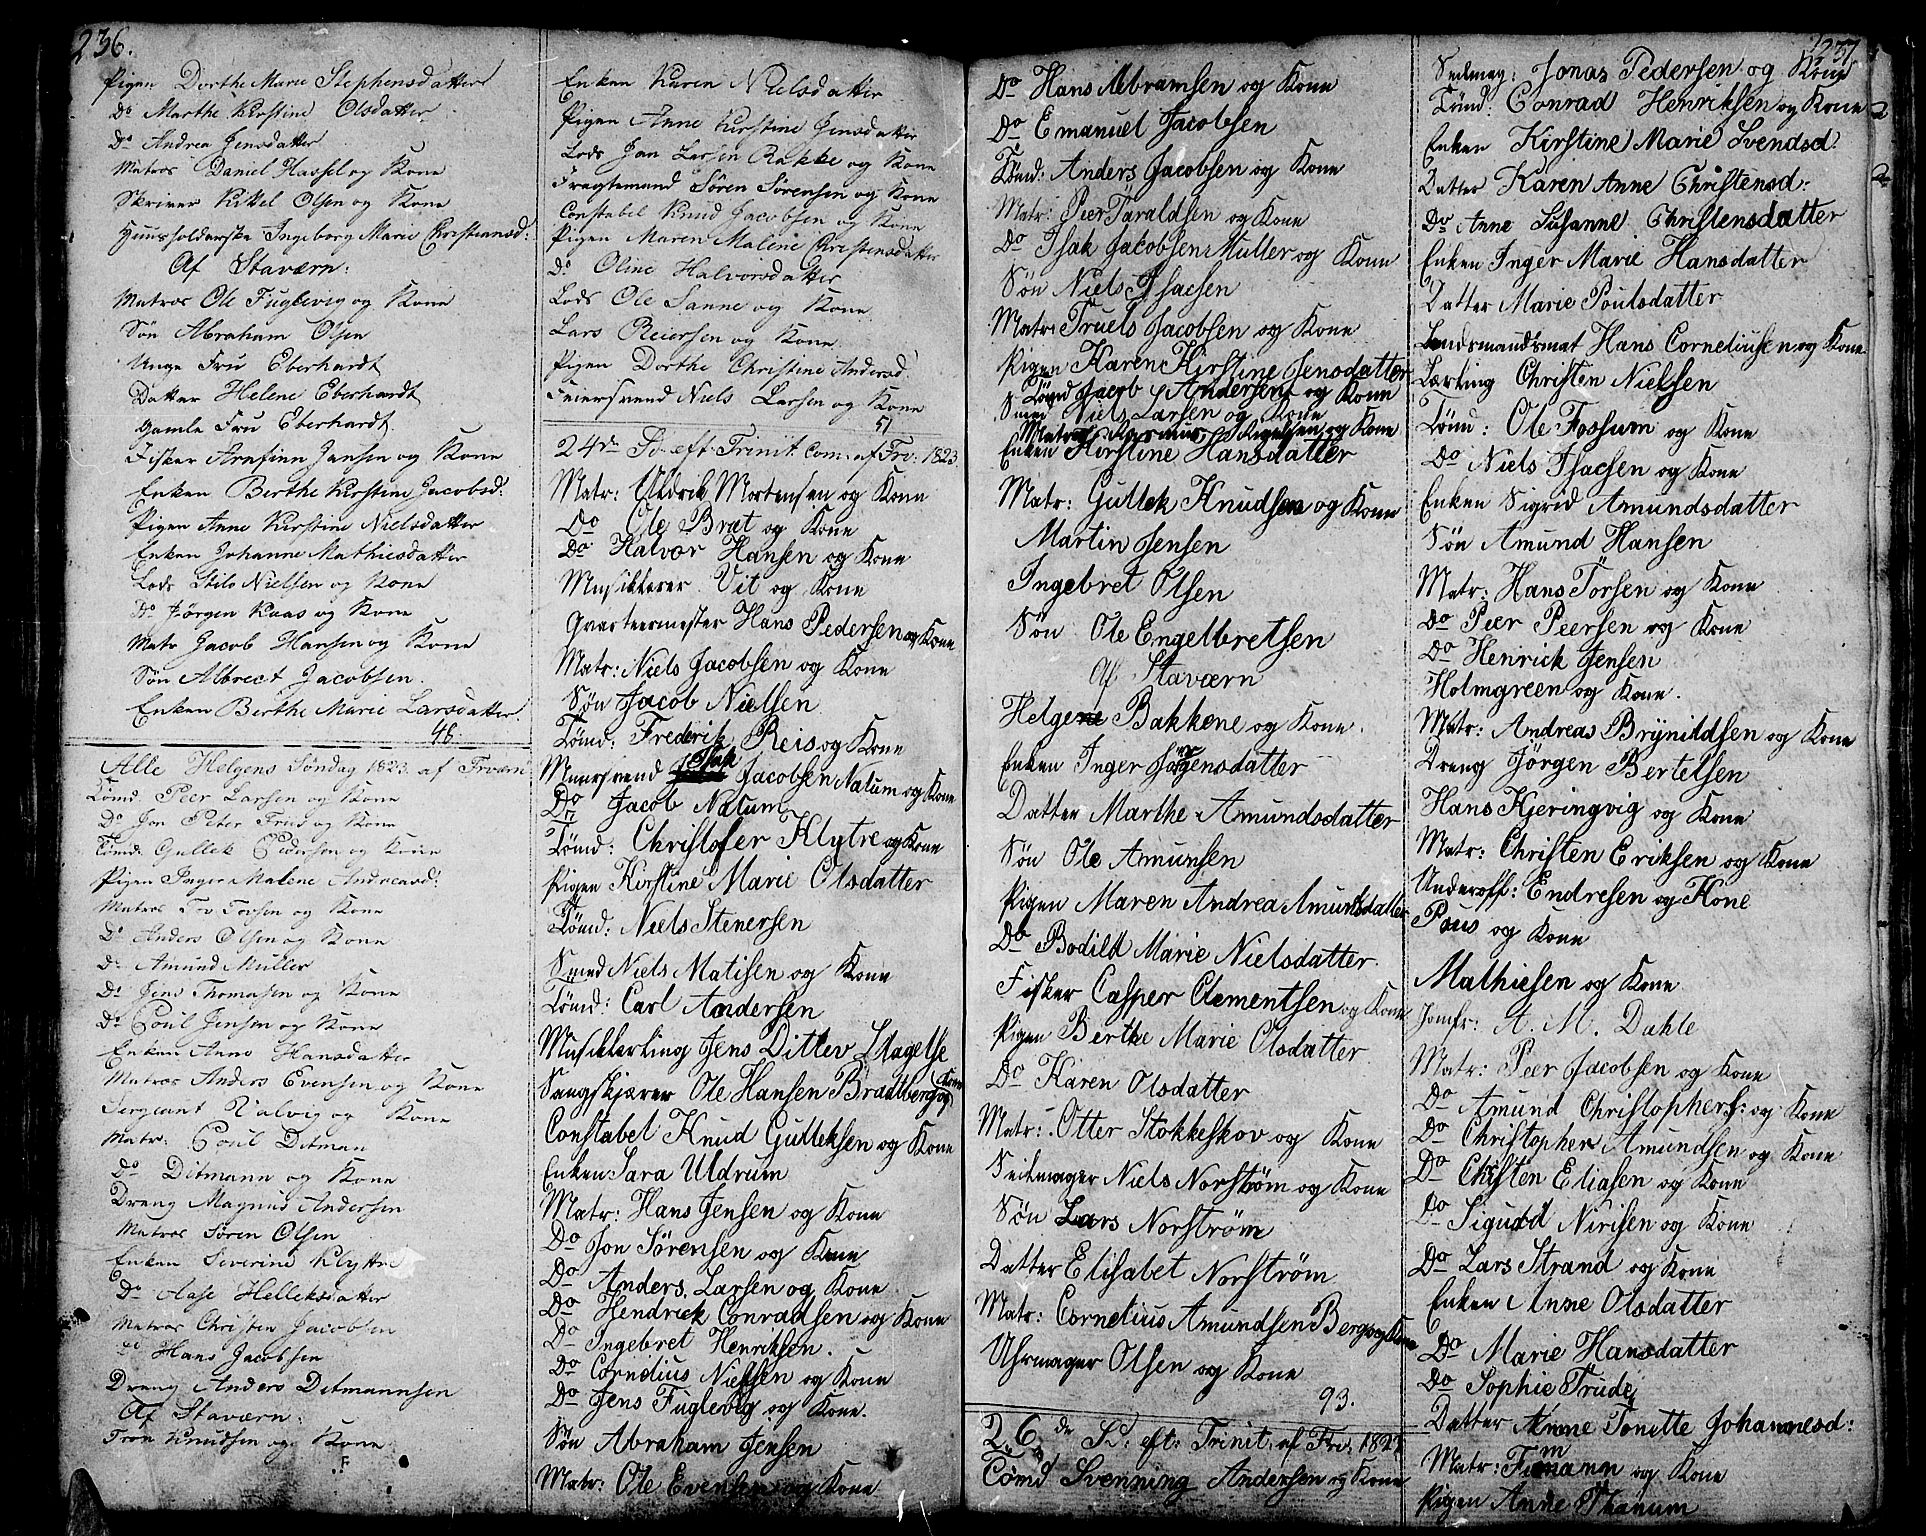 236.
Pigen Dorthe Marie Stephensdatter
Do Marthe Kirstine Olsdatter
Do Andrea Jensdatter
Matros Daniel Hassel og Kone
Skriver Kittel Olsen og Kone
Huusholderske Ingeborg Marie Christiansd:
Af Staværn:
Matros Ole Fuglevig og Kone
Søn Abraham Olsen
Unge Fru Eberhardt
Datter Helene Eberhardt
Gamle Fru Eberhardt.
Fisker Arnfinn Jansen og Kone
Enken Berthe Kirstine Jacobsd:
Pigen Anne Kirstine Nielsdatter
Enken Johanne Mathiesdatter
Lods Nielsen og Kone
Do Jørgen Kaas og Kone
Matr Jacob Hansen og Kone
Søn Albrect Jacobsen.
Enken Berthe Marie Larsdatter.
48.
Alle Helgens Søndag 1823. af Frværn
Tømd. Peer Larsen og Kone
Do Jon Peter Frus og Kone
Tømd. Gullek Pedersen og Kone
Pigen Inger Malene Andreasd:
Matros Tov Tovsen og Kone
Do Anders Olsen og Kone
Do Amund Müller
Do Jens Thomasen og Kone
Do Poul Jensen og Kone
Enken Anne Hansdatter
Matros Anders Evensen og Kone
Sergeant Valvig og Kone
Matr: Poul Ditman
Do Ditmann og Kone
Dreng Magnus Andersen
Matros Søren Olsen
Enken Severine Klyttre
Do Aase Helleksdatter
Matros Christen Jacobsen
Do Hans Jacobsen
Dreng Anders Ditmannsen
Af Staværn:
Tron Knudsen og Kone
Enken Karen Nielsdatter
Pigen Anne Kirstine Jensdatter
Lods Jan Larsen Rakke og Kone
Fragtemand Søren Sørensen og Kone
Constabel Knud Jacobsen og Kone
Pigen Maren Malene Christensdatter
Do Oline Halvorsdatter
Lods Ole Sanne og Kone
Lars Reiersen og Kone
Pigen Dorthe Christine Andersd.
Feiersvend Niels Larsen og Kone
51
24de S. eft Trinit Com: af Fri: 1823.
Matr: Uldrik Mortensen og Kone
Do Ole Bræt og Kone
Do Halvor Hansen og Kone
Musikkerer Vit og Kone
Qvarteermester Hans Pedersen og Kone
Matr: Niels Jacobsen og Kone
Søn Jacob Nielsen
Tømd: Frederik Reis og Kone
Muursvend Isak Jacobsen Natum og Kone
Do Jacob Natum
Tømd: Christofer Klytre og Kone
Pigen Kirstine Marie Olsdatter
Tømd: Niels Stenersen
Smed Niels Matisen og Kone
Tømd: Carl Andersen
Musiklerling Jens Ditlev Slagelse
Sangskjærer Ole Hansen Bradtberg og Kone
Constabel Knud Gulleksen og Kone
Enken Sara Uldrum
Matr: Hans Jensen og Kone
Do Jon Sørensen og Kone
Do Anders Larsen og Kone
Do Hendrick Conradsen og Kone
Do Ingebret Henriksen.
Do Cornelius Nielsen og Kone
Do Jens Fuglevig og Kone.
Søn Abraham Jensen
Matr: Ole Evensen og Kone
Do Hans Abramsen og Kone
Do Emanuel Jacobsen
Tømd: Anders Jacobsen og Kone
Matr: Peer Taraldsen og Kone
Do Isak Jacobsen Müller og Kone
Søn Niels Isacsen
Matr: Truels Jacobsen og Kone
Pigen Karen Kirstine Jensdatter
Tømd Jacob Andersen og Kone
Smed Niels Larsen og Kone
Matros og Kone
Enken Kirstine Hansdatter
Matr: Gullek Knudsen og Kone
Martin Jensen
Ingebret Olsen
Søn Ole Engelbretsen
af Staværn
Helgene Bakkene og Kone.
Enken Inger Jörgensdatter
Datter Marthe Amundsdatter
Søn Ole Amunsen
Pigen Maren Andrea Amundsdatter
Do Bodild Marie Nielsdatter.
Fisker Casper Clementsen og Kone
Pigen Berthe Marie Olsdatter
Do Karen Olsdatter
Matr: Otter Stokkeskov og Kone
Seilmager Niels Norström og Kone
Søn Lars Norström
Datter Elisabet Norström
Matr: Cornelius Amundsen Berg og Kone
Uhrmager Olsen og Kone
93.
26de S: eft: Trinit. af Fri: 182
Tömd Svenning Andersen og Kone
237
Seilmag: Jonas Pedersen og Kone
Tömd: Conrad Henriksen og Kone
Enken Kirstine Marie Svendsd.
Datter Karen Anne Christensd:
Do Anne Susanne Christensdatter
Enken Inger Marie Hansdatter
Datter Marie Poulsdatter
Lendsmandsmat Hans Corneliusen og Kone
Lærling Christen Nielsen
Tömd: Ole Fossum og Kone
Do Niels Isacsen og Kone
Enken Sigrid Amundsdatter
Søn Amund Hansen
Matr: Hans Törsen og Kone
Do Peer Peersen og Kone
Do Henrick Jensen
Holmgreen og Kone.
Matr: Andreas Brynildsen og Kone
Dreng Jörgen Bertelsen
Hans Kjeringvig og Kone
Matr: Christen Eriksen og Kone
Underoff: Endresen og Kone
Pous og Kone
Mathiesen og Kone
Jomfr: A. M. Dahle
Matr: Peer Jacobsen og Kone
Do Amund Christophers: og Kone
Do Christopher Amundsen og Kone
Do Christen Eliasen og Kone
Do Sigurd Nirisen og Kone
Do Lars Strand og Kone
Enken Anne Olsdatter
Do Marie Hansdatter
Do Sophie Trude
Datter Anne Tonette Johannesd:
Matr: Fimann og Kone
Pigen Anne Thanum